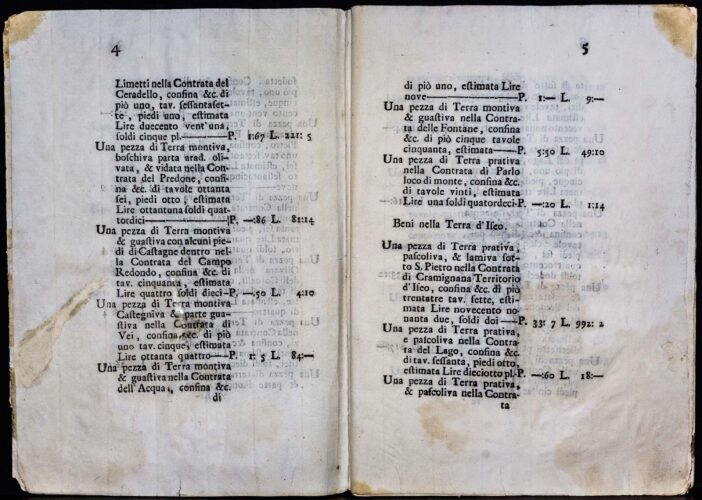 4
Limetti nella Contrata del
Ceradello, confina &c. di
piò uno, tav. sessantaset-
te, piedi uno, estimata
Lire duecento vent'una
soldi cinque pl.——P. 1:67 L. 221: 5
Una pezza di Terra montiva,
boschiva parta arad. oli-
vata, & vidata nella Con-
trata del Predone, confi-
na &c. di tavole ottanta
sei, piedi otto; estimata
Lire ottantuna soldi quat-
tordici——P. —:86 L. 81:14
Una pezza di Terra montiva
& guastiva con alcuni pie-
di di Castagne dentro nel-
la Contrata del Campo
Redondo, confina &c. di
tav. cinquanta, estimata
Lire quattro soldi dieci-P. —:50 L. 4:10
Una pezza di Terra montiva
Castegniva & parte gua-
stiva nella Contrata di
Vei, confina &c. di piò
uno tav. cinque, estimata
Lire ottanta quattro—P. 1: 5 L. 84:—
Una pezza di Terra montiva
& guastiva nella Contrata
dell'Acqua, confina &c.
di
5
di piò uno, estimata Lire
nove——P. 1:— L. 9:—
Una pezza di Terra montiva
& guastiva nella Contra-
ta delle Fontane, confina
&c. di piò cinque tavole
cinquanta, estimata—P. 5:50 L. 49:10
Una pezza di Terra prativa
nella Contrata di Parlo
loco di monte, confina &c.
di tavole vinti, estimata
Lire una soldi quatordeci-P. —:20 L. 1:14
Beni nella Terra d'Iseo.
Una pezza di Terra prativa,
pascoliva, & lamiva sot-
to S. Pietro nella Contrata
di Cramignana Territorio
d'Iseo, confina &c. di piò
trentatre tav. sette, esti-
mata Lire novecento no-
nanta due, soldi doi—P. 33: 7 L. 992: 2
Una pezza di Terra prativa,
e pascoliva nella Contra-
ta del Lago, confina &c.
di tav. sessanta, piedi otto,
estimata Lire dieciotto pl-P. —:60 L. 18:—
Una pezza di Terra prativa,
& pascoliva nella Contra-
ta